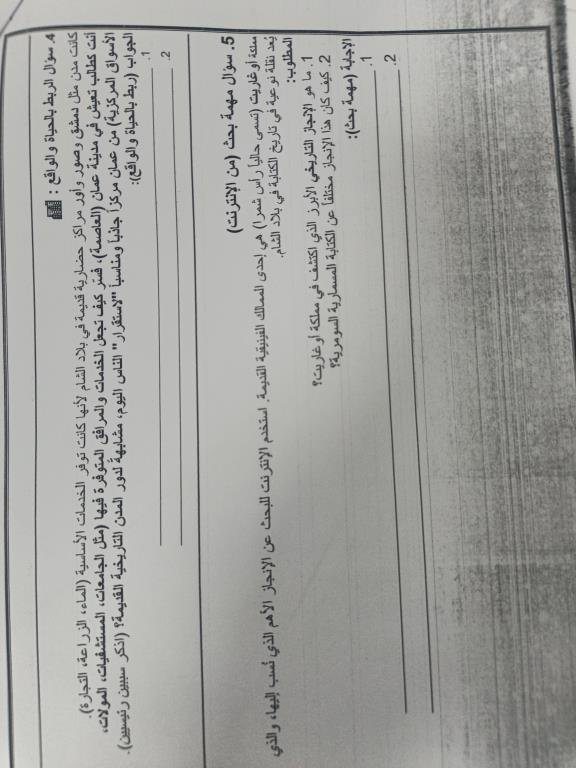 4. سؤال الربط بالحياة والواقع :
كانت مدن مثل دمشق وصور وأور مراكز حضارية قديمة في بلاد الشام لأنها كانت توفر الخدمات الأساسية (الماء، الزراعة، التجارة).
أنت كطالب تعيش في مدينة عمان (العاصمة)، فسّر كيف تجعل الخدمات والمرافق المتوفرة فيها (مثل الجامعات، المستشفيات، المولات،
الأسواق المركزية) من عمان مركزاً جاذباً ومناسباً "لاستقرار" الناس اليوم، مشابهةً لدور المدن التاريخية القديمة؟ (اذكر سببين رئيسيين).
الجواب (ربط بالحياة والواقع):
1.
2.
5. سؤال مهمة بحث (من الإنترنت)
مملكة أوغاريت (تسمى حاليا رأس شمرا) هي إحدى الممالك الفينيقية القديمة. استخدم الإنترنت للبحث عن الإنجاز الأهم الذي نُسب إليها، والذي
يُعد نقلة نوعية في تاريخ الكتابة في بلاد الشام.
المطلوب:
1. ما هو الإنجاز التاريخي الأبرز الذي اكتشف في مملكة أوغاريت؟
2. كيف كان هذا الإنجاز مختلفاً عن الكتابة المسمارية السومرية؟
الإجابة (مهمة بحث):
1.
2.